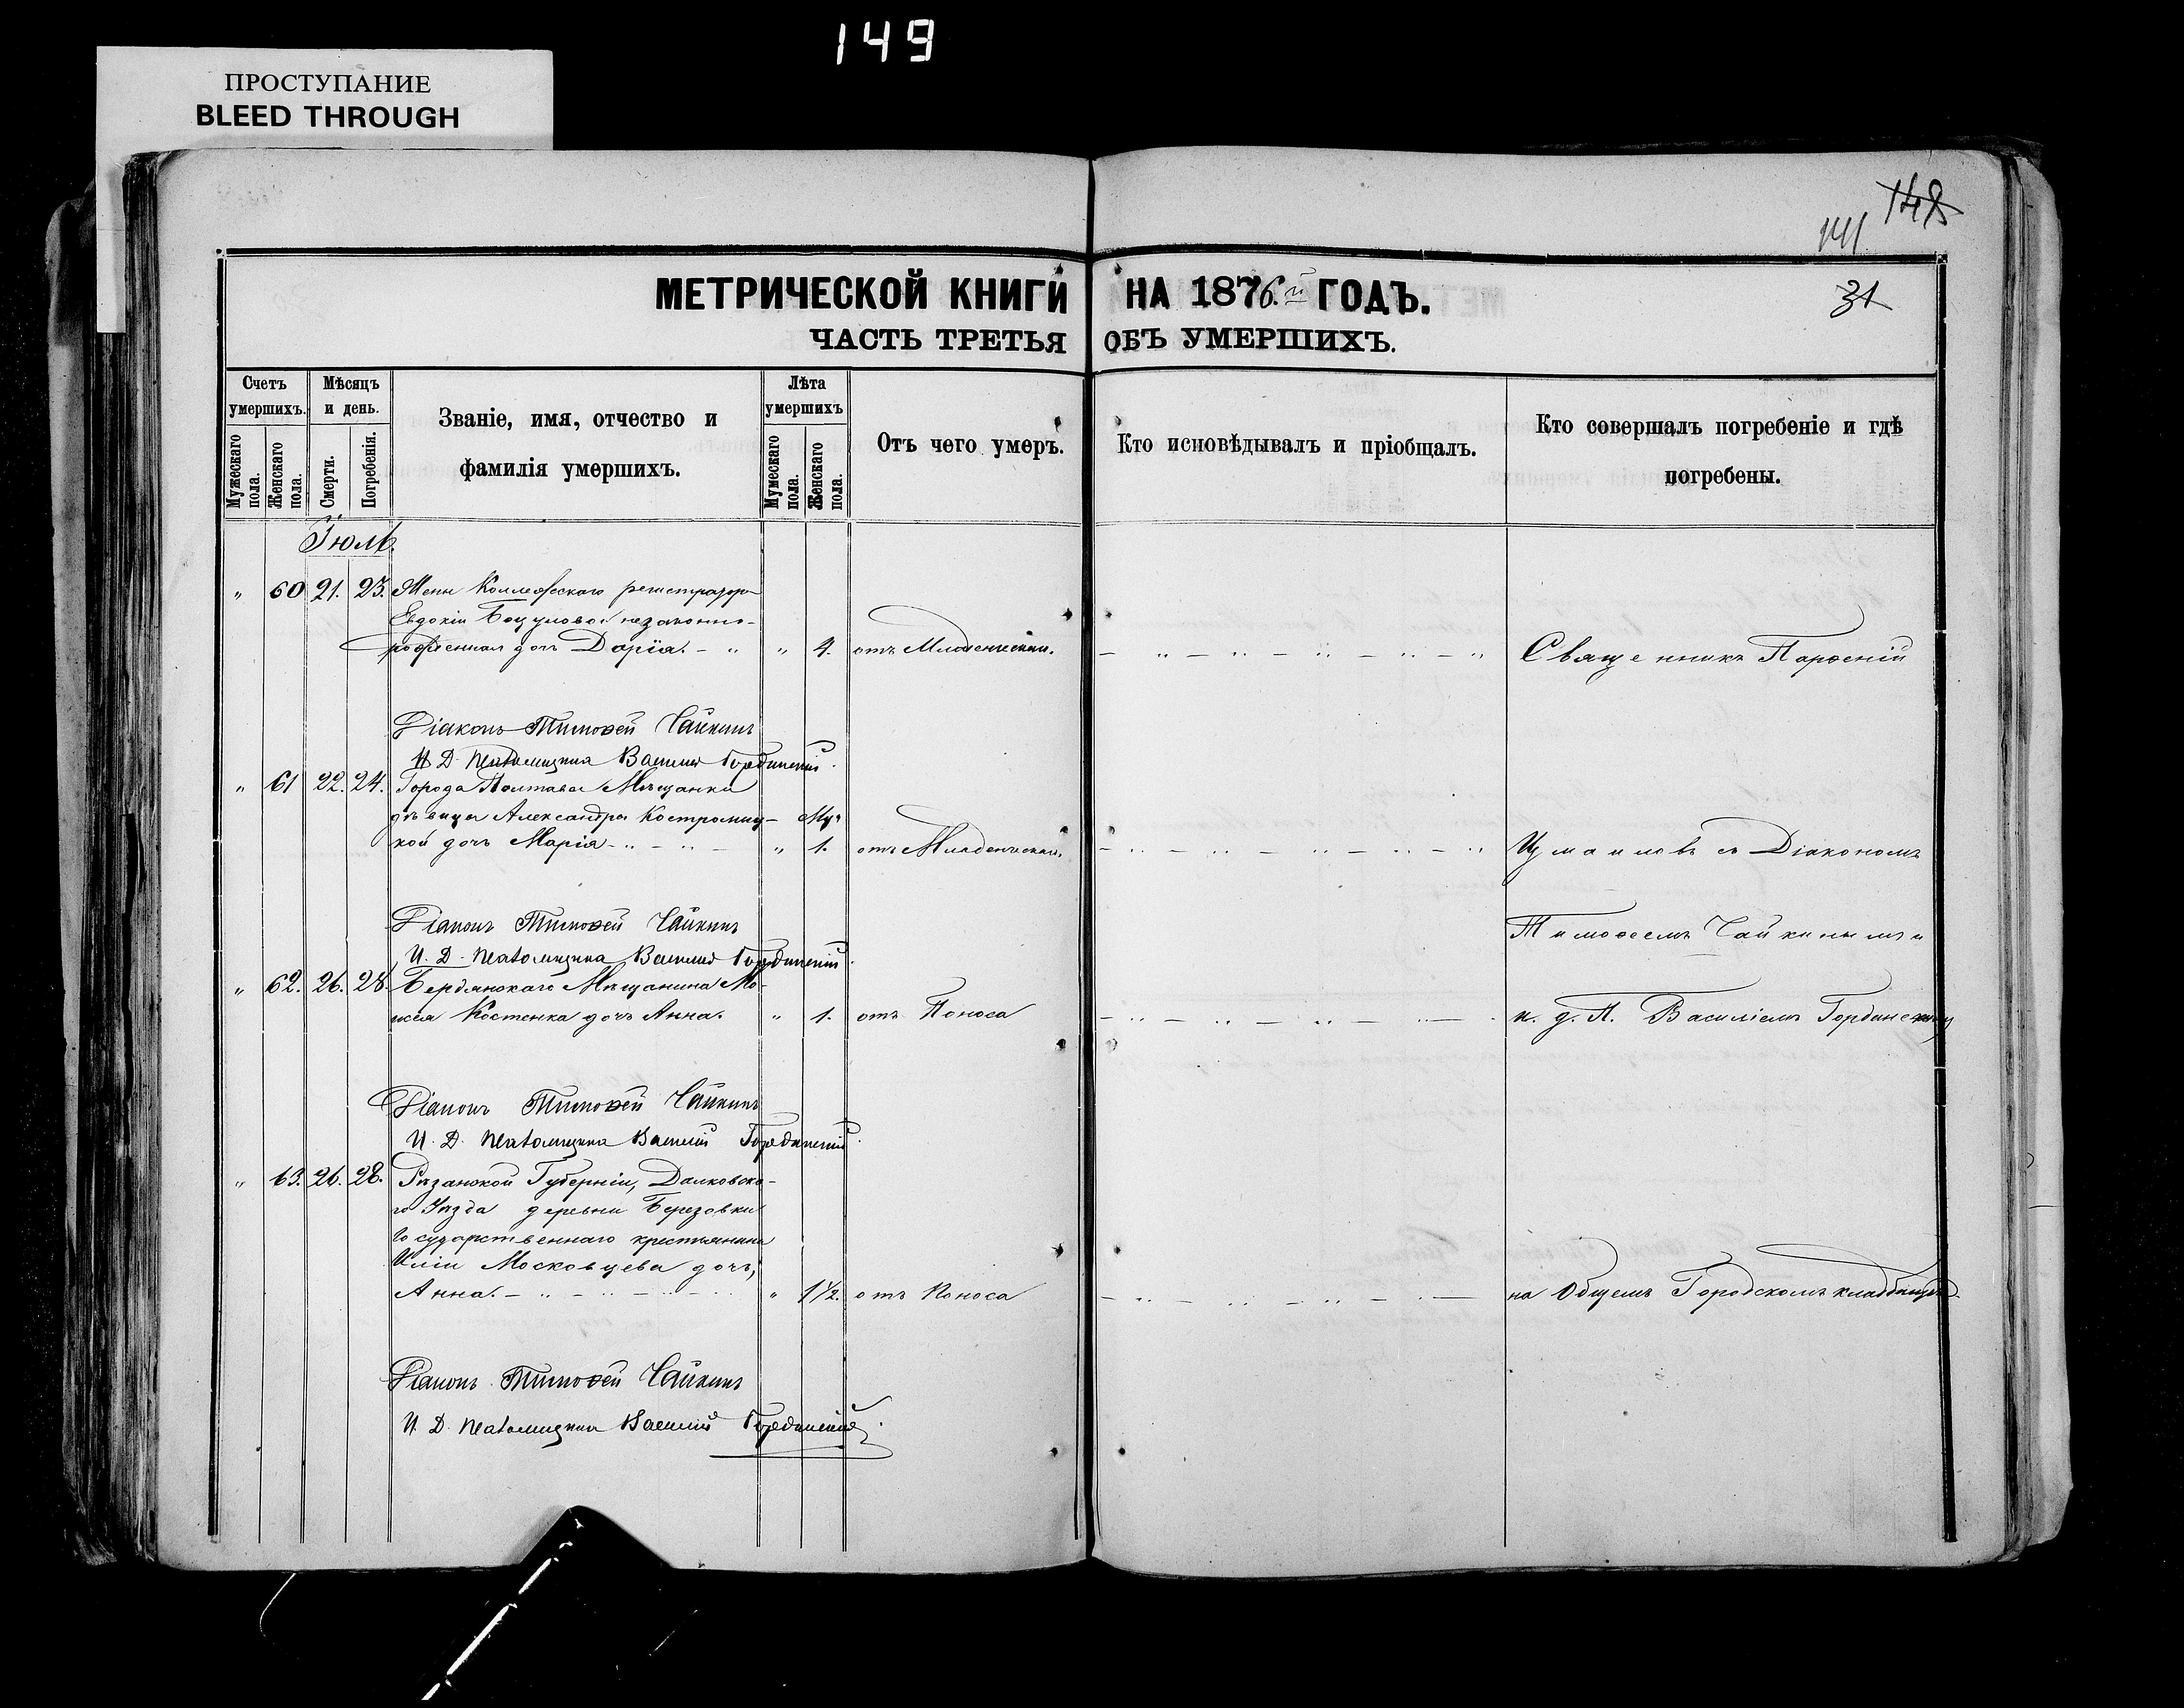 149
ПРОСТУПАНИЕ
BLEED THROUGH
148
141
МЕТРИЧЕСКОЙ КНИГИ НА 1876.й ГОДЪ.
31
ЧАСТЬ ТРЕТЬЯ ОБЪ УМЕРШИХЪ.
Счетъ умершихъ.
Мѣсяцъ и день.
Званіе, имя, отчество и фамилія умершихъ.
Лѣта умершихъ
Отъ чего умеръ.
Кто исповѣдывалъ и пріобщалъ.
Кто совершалъ погребеніе и гдѣ погребены.
Мужескаго пола.
Женскаго пола.
Смерти.
Погребенія.
Мужескаго пола.
Женскаго пола.
Іюль.
" 60 21. 23. Жены Коллежскаго регистратора
Евдокіи незаконно-
рожденная дочь Дарія. - " " 4. отъ Младенческой. Священникъ Парѳеній
Діаконъ Тимоѳей Чайкинъ
И. Д. Псаломщика Василій Гординскій
" 61 22. 24. Города Полтавы Мѣщанки
дѣвицы Александры Костромиц-
кой дочь Марія " Мц. 1. отъ Младенческой. Измаиловъ съ Діакономъ
Діаконъ Тимоѳей Чайкинъ
Тимоѳеемъ Чайкинымъ и
И. Д. Псаломщика Василій Гординскій
" 62. 26. 28. Бердянскаго Мѣщанина Мо-
исея Костенка дочь Анна. " 1. отъ Поноса и. д. П. Василіемъ Гординскимъ
Діаконъ Тимоѳей Чайкинъ
И. Д. Псаломщика Василій Гординскій
" 63. 26. 28. Рязанской Губерніи, Данковска-
го Уѣзда деревни Березовки
Государственнаго крестьянина
Иліи Московцева дочь,
Анна. " 1½. отъ Поноса на Общемъ Городскомъ кладбищѣ.
Діаконъ Тимоѳей Чайкинъ
И. Д. Псаломщика Василій Гординскій